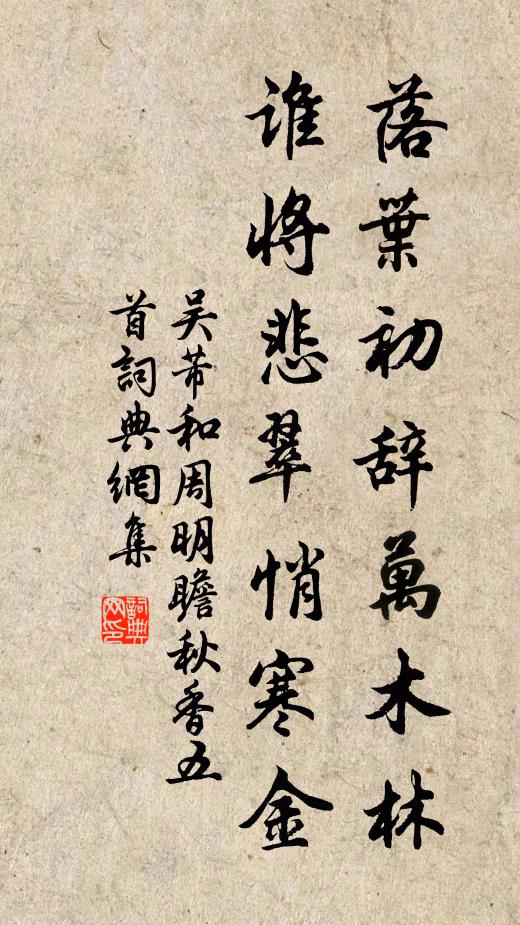 落葉初辞萬木林
誰將悲翠悄寒金
吴芾和周明瞻秋香五
首詞典網集
詞典网印